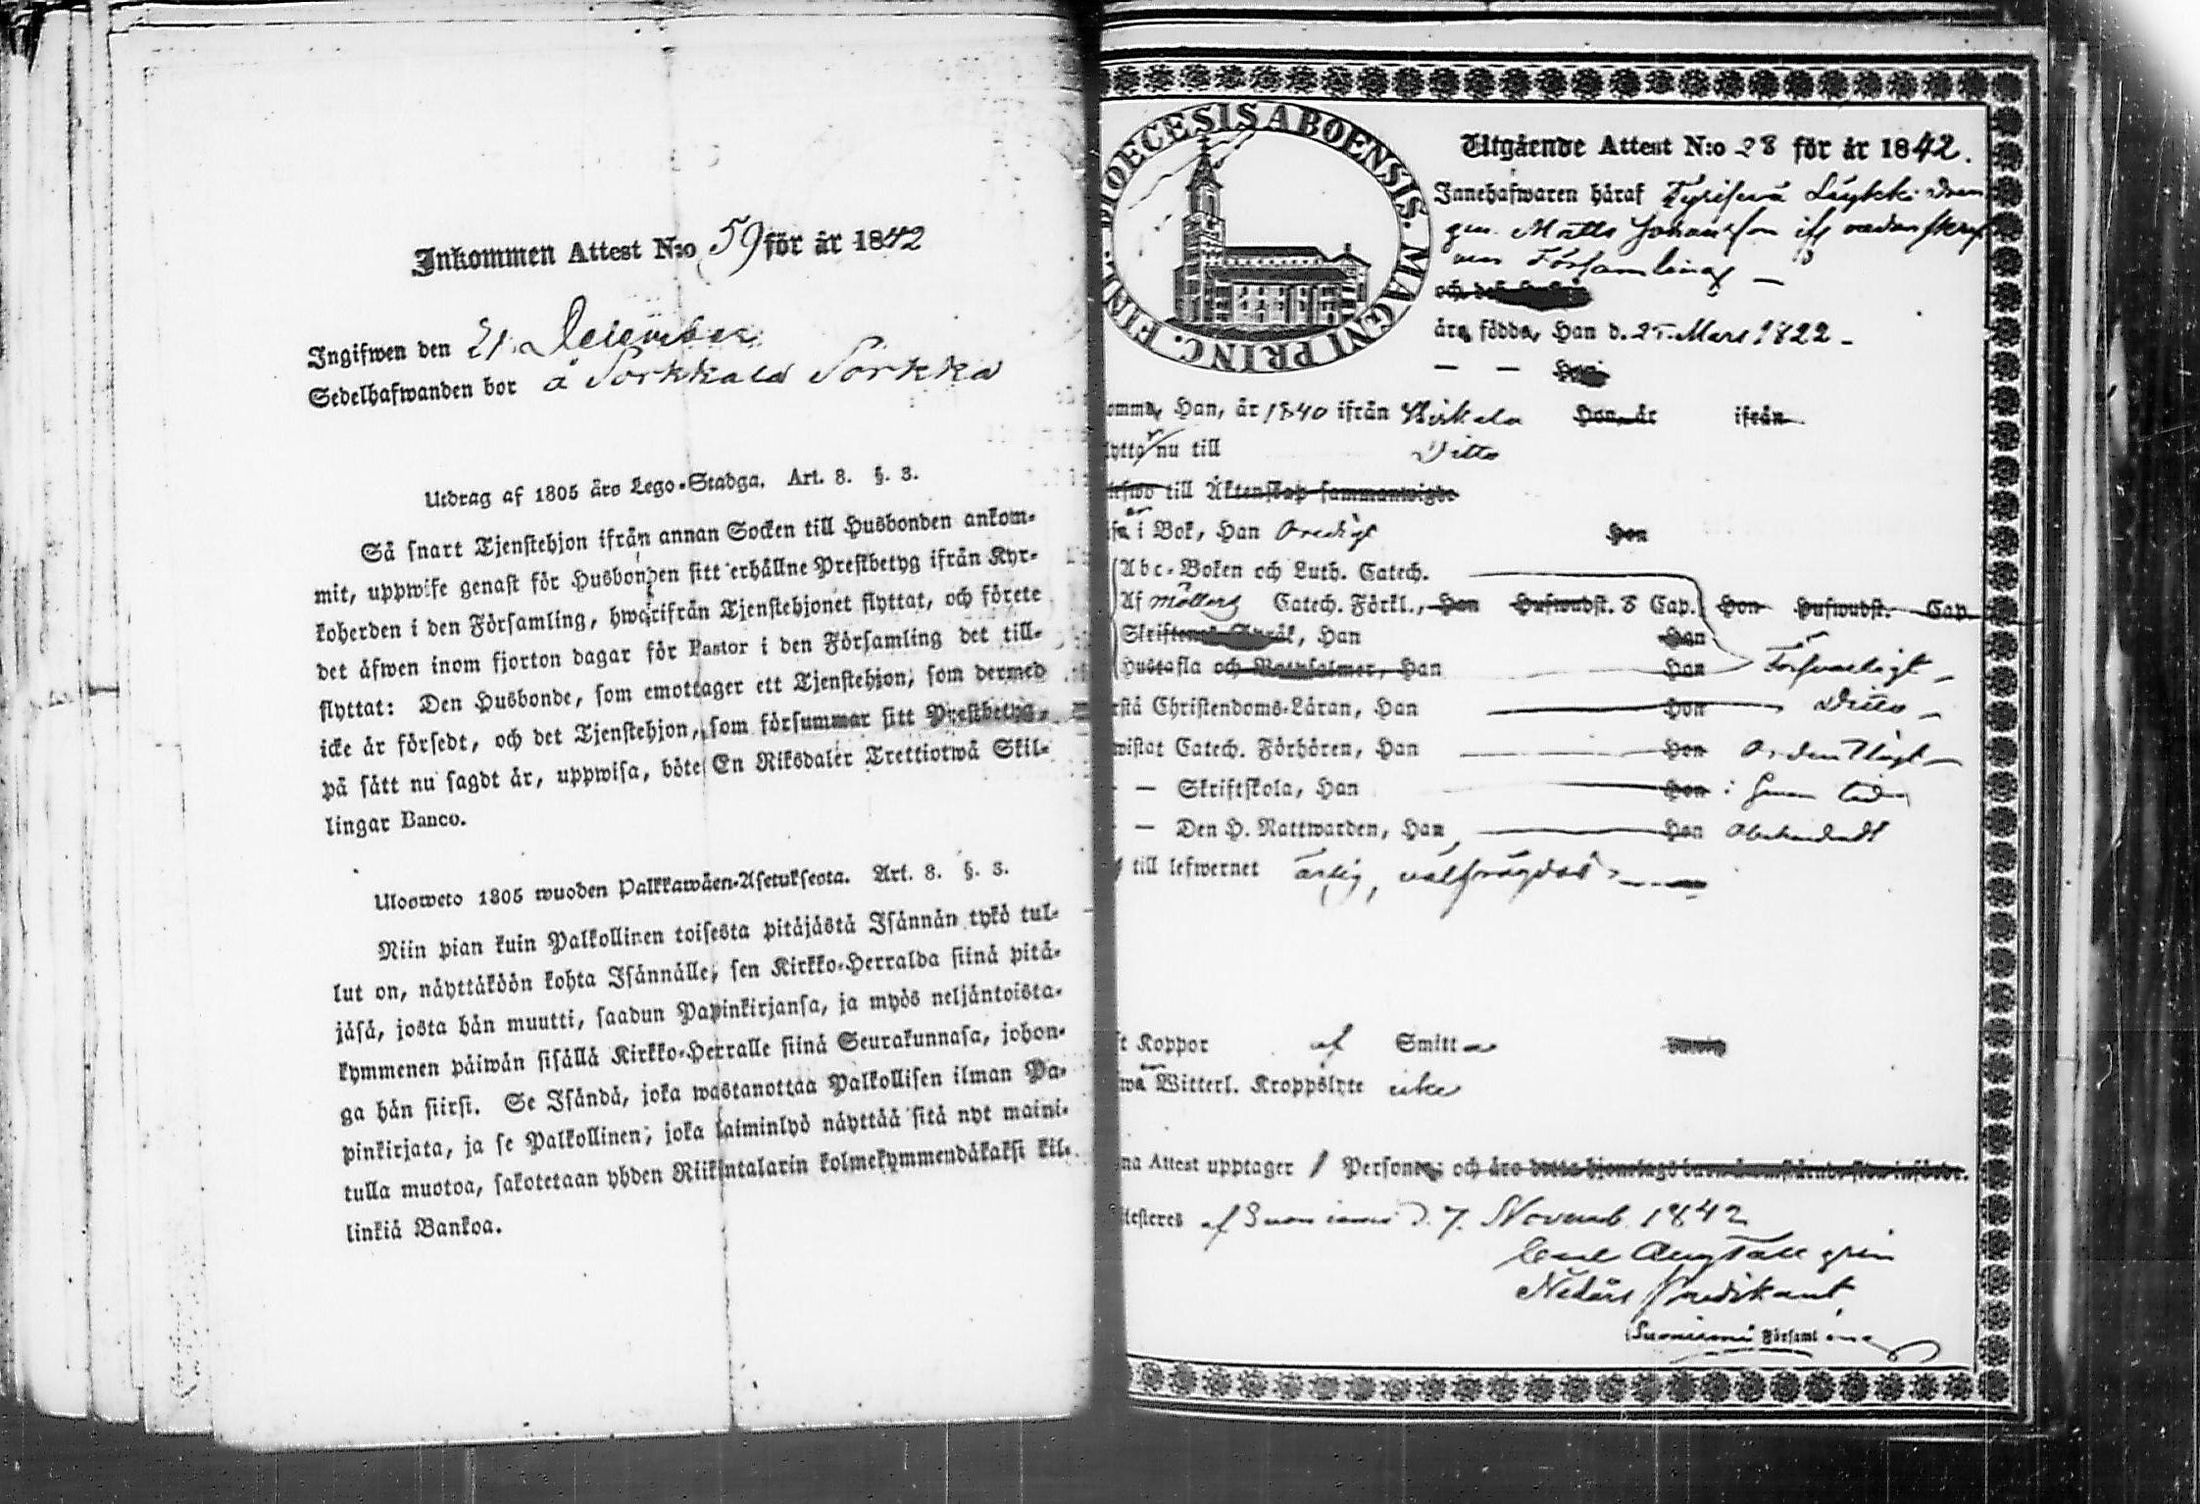 Inkommen Attest N:o 59 för år 1842
Ingifwen den 21 December
Sedelhafwanden bor å Sorkkala Sorkka
Utdrag af 1805 års Lego-Stadga. Art. 8. §. 3.
Så snart Tjenstehjon ifrån annan Socken till Husbonden ankom-
mit, uppwise genast för Husbonden sitt erhållne Prestbetyg ifrån Kyr-
koherden i den Församling, hwarifrån Tjenstehjonet flyttat, och förete
det äfwen inom fjorton dagar för Pastor i den Församling det till-
flyttat: Den Husbonde, som emottager ett Tjenstehjon, som dermed
icke är försedt, och det Tjenstehjon, som försummar sitt Prestbetyg,
på sätt nu sagdt är, uppwisa, böte En Riksdaler Trettiotwå Skil-
lingar Banco.
Ulosweto 1805 wuoden Palkkawäen-Asetuksesta. Art. 8. §. 3.
Niin pian kuin Palkollinen toisesta pitäjästä Isännän tykö tul-
lut on, näyttäköön kohta Isännälle, sen Kirkko-Herralda siinä pitä-
jäsä, josta hän muutti, saadun Papinkirjansa, ja myös neljäntoista-
kymmenen päiwän sisällä Kirkko-Herralle siinä Seurakunnasa, johon-
ga hän siirsi. Se Isändä, joka wastanottaa Palkollisen ilman Pa-
pinkirjata, ja se Palkollinen, joka laiminlyö näyttää sitä nyt maini-
tulla muotoa, sakotetaan yhden Riikintalarin kolmekymmendäkaksi kil-
linkiä Bankoa.
DIOECESIS ABOENSIS. MAGNI PRINC. FINL.
Utgående Attest N:o 28 för år 1842.
Innehafwaren häraf Dren
gen Matts Johansson
Församling
äro födde, Han d. 25 Mars 1822
omma, Han, år 1840 ifrån Wirkala Hon, år ifrån
lytta nu till Ditto
till Äktenskap sammanwigde
i Bok, Han Hon
Abc-Boken och Luth. Catech.
Af Möllers Catech. Förkl., Han Hufwudst. 8 Cap. Hon Hufwudst. Cap.
Skriftens Språk, Han Hon
Hustafla och Han Hon Försvarligt
rstå Christendoms-Läran, Han Hon Ditto
wistat Catech. Förhören, Han Hon Ordentligt
— Skriftskola, Han Hon i sinom tid
— Den H. Nattwarden, Han Hon
till lefwernet ärlig, välfrägdad
Koppor af Smitta
Witterl. Kroppslyte icke
na Attest upptager 1 Person och
testeras af Suoniemi d. 7. Novemb. 1842
Carl Aug Tallgrén
Nådårs Predikant
Suoniemi Församling